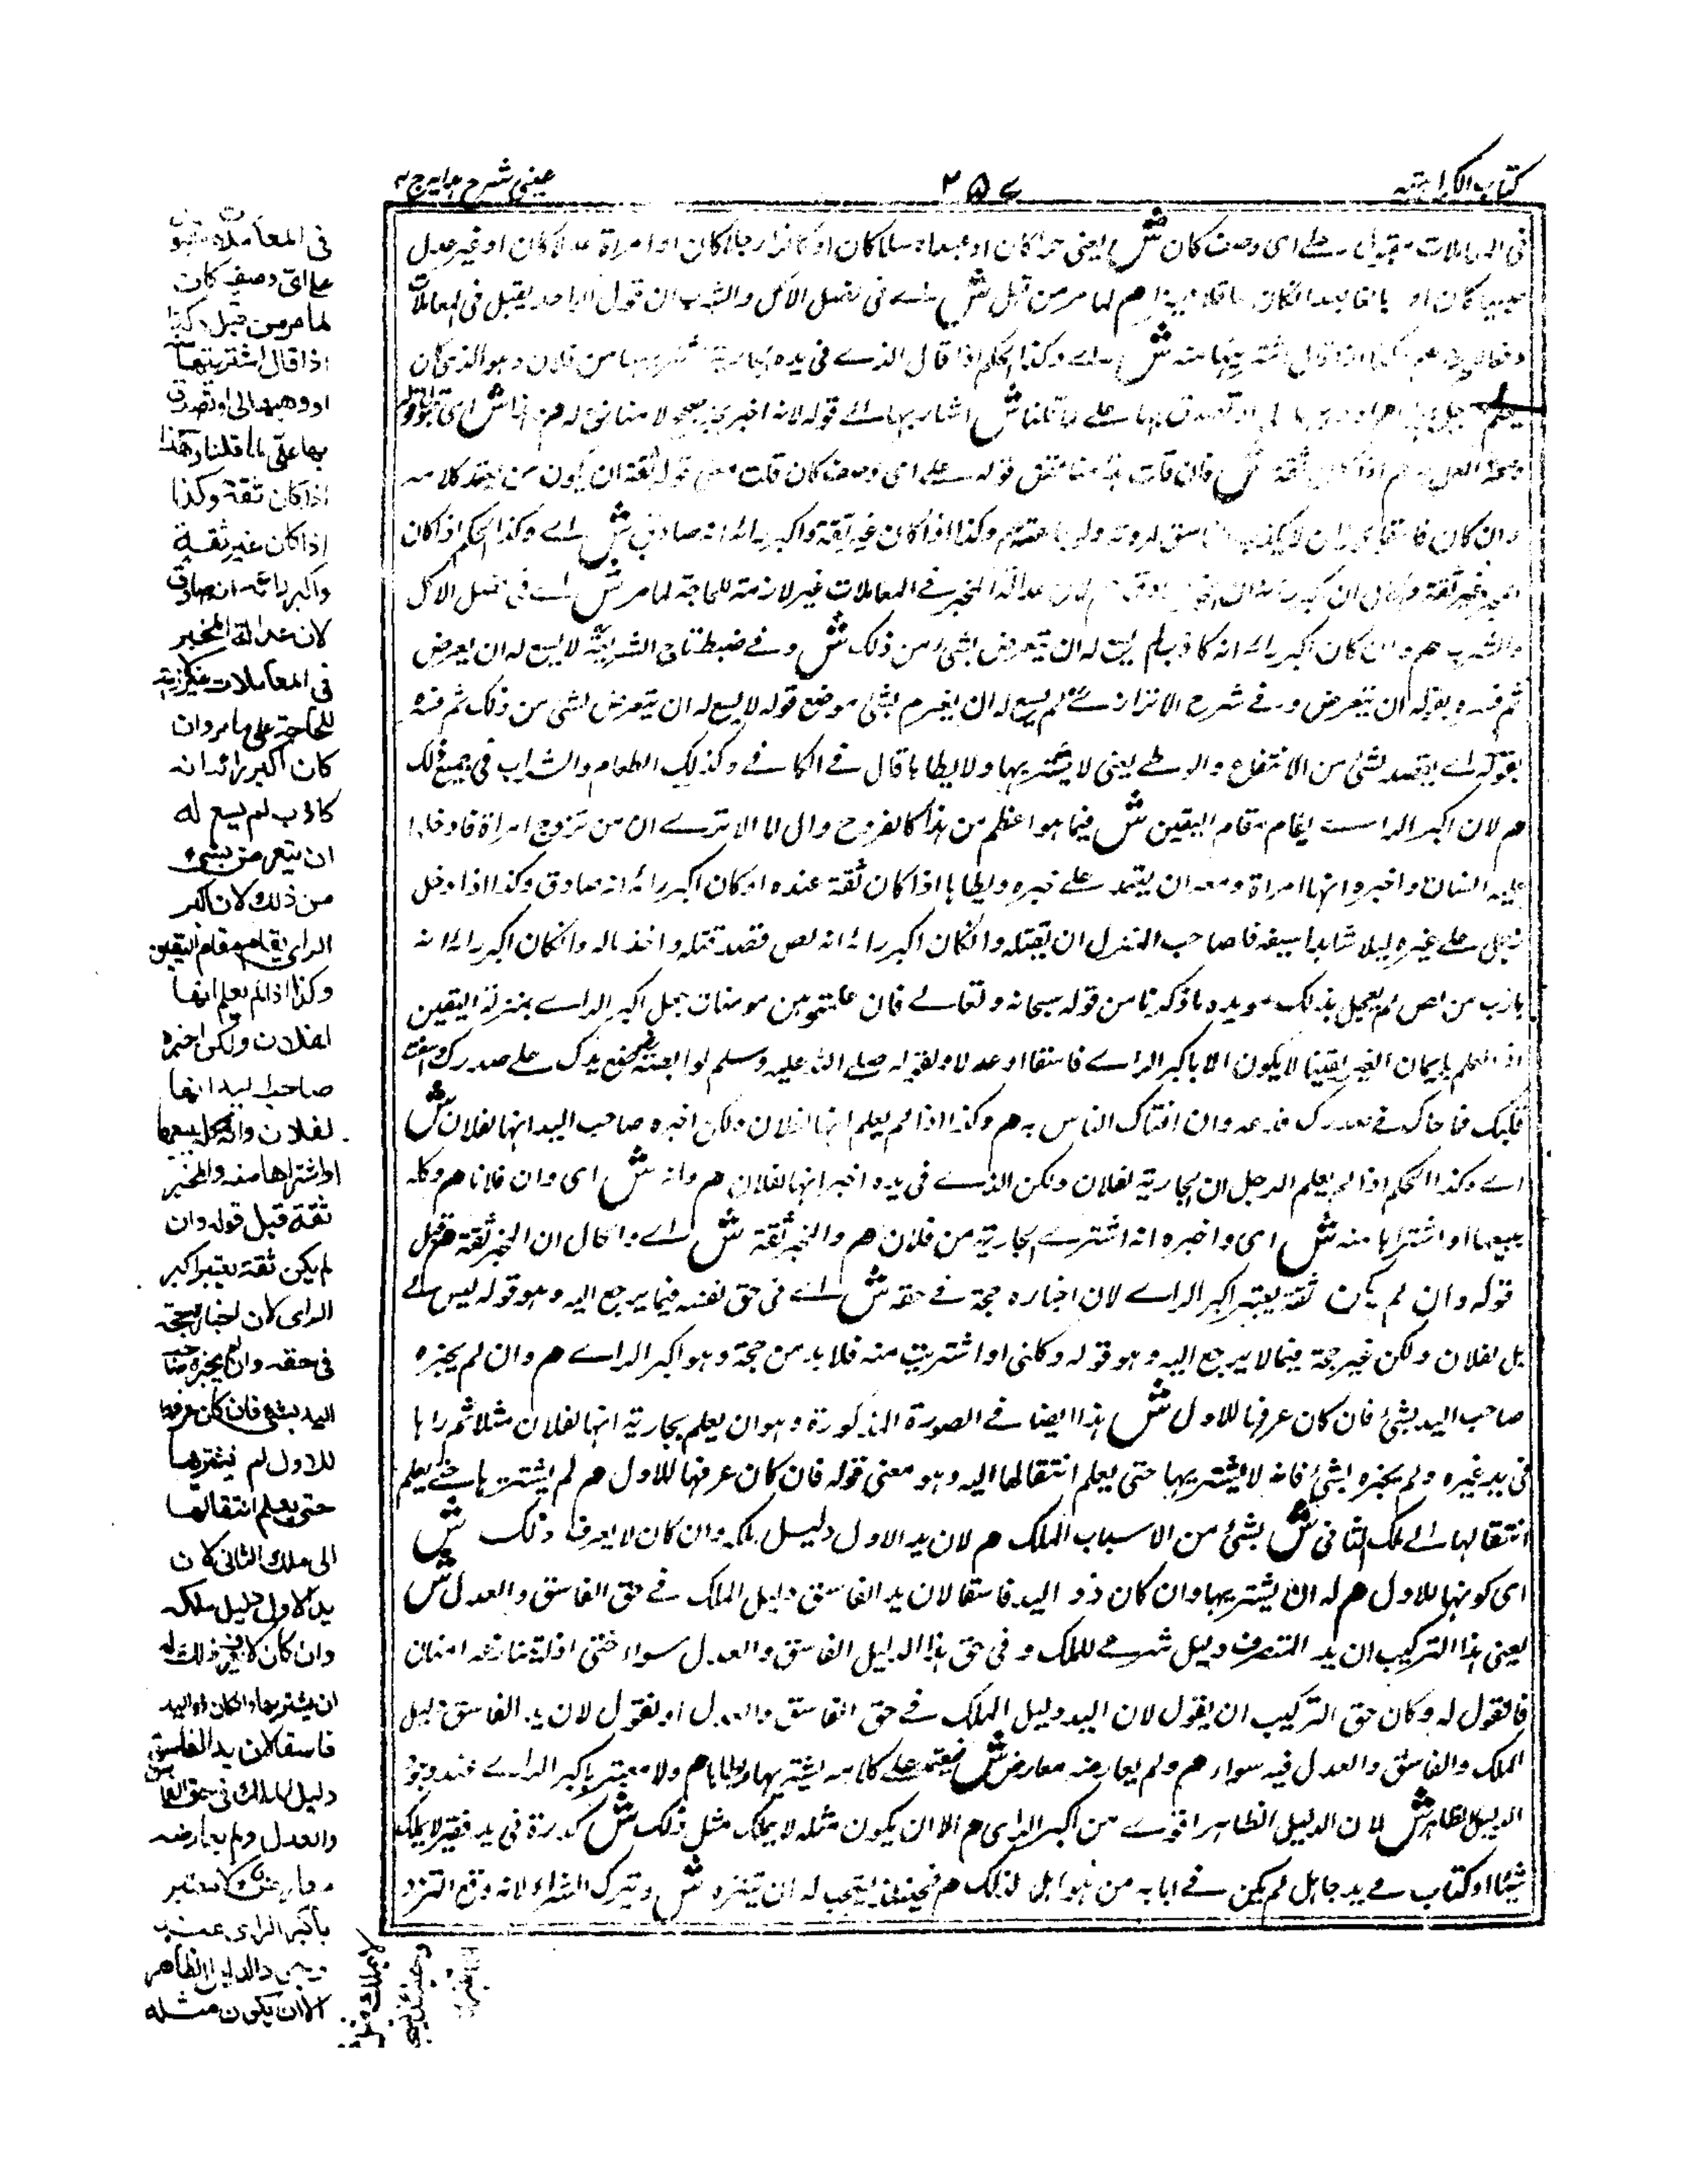 كتاب الكراهية
٢٥٧
عينى شرح هدايه ج ٤
فى المعاملات مقبول على اى وصف كان ش يعنى حرا كان او عبدا مسلما كان او كافرا رجلا كان او امراة عدلا كان او غير عدل
صبيا كان او بالغا بعد ان كان عاقلا مميزا هم لما مر من قبل ش اے فى فصل الاكل والشرب ان قول الواحد يقبل فى المعاملات
اشتريتها منه ش اے وكذا الحكم اذا قال الذے فى يده الجارية اشتريتها من فلان وهو الذى كان
او تصدق بها على ما قلنا ش اشار بها الے قوله لانه اخبر بخبر صحيح لا منازع له هم
هم اذا كان ثقة ش فان قلت هذا مناقض قوله على اى وصف كان قلت معنى قوله ثقة ان يكون من يعتمد كلامه
وان كان فاسقا هم وكذا اذا كان غير ثقة واكبر رائه انه صادق ش اے وكذا الحكم اذا كان
المخبر غير ثقة عدالة المخبر فے المعاملات غير لازمة للحاجة لما مر ش اے فى فصل الاكل
والشرب هم وان كان اكبر رائه انه كاذب لم يسع له ان يتعرض بشئ من ذلك ش وفے ضبط تاج الشريعة لا يسع له ان يعرض
ثم فسره بقوله ان يتعرض وفے شرح الاترازے لم يسع له ان يغرم بشئ موضع قوله لا يسع له ان يتعرض لشئ من ذلك ثم فسره
بقوله اے يقصد لشئ من الانتفاع والوطے يعنى لا يشتريها ولا يطاها قال فے الكافے وكذلك الطعام والشراب فى جميع ذلك
هم لان اكبر الراے يقام مقام اليقين ش فيما هو اعظم من هذا كالفروج والدماء الا ترے ان من تزوج امراة فادخلها
عليه انسان واخبره انها امراة وسعه ان يعتمد على خبره ويطاها اذا كان ثقة عنده او كان اكبر رائه انه صادق وكذا اذا دخل
رجل على غيره ليلا شاهرا سيفه فلصاحب المنزل ان يقتله وان كان اكبر رائه انه لص قصد قتله واخذ ماله وان كان اكبر رائه انه
هارب من لص لم يعجل بذلك مويده ما ذكرنا من قوله سبحانه وتعالے فان علمتموهن مومنات جعل اكبر الراے بمنزلة اليقين
اذ العلم بايمان الغير يقينا لا يكون الا باكبر الراے فاسقا او عدلا ولقوله صلے الله عليه وسلم لوابصة ضع يدك على صدرك واستفت
قلبك فما حاك فے صدرك فدعه وان افتاك الناس به هم وكذا اذا لم يعلم انها لفلان ولكن اخبره صاحب اليد انها لفلان ش
اے وكذا الحكم اذا لم يعلم الرجل ان الجارية لفلان ولكن الذے فى يده اخبر انها لفلان هم وانه ش اى وان فلانا هم وكله
ببيعها او اشتراها منه ش اى واخبره انه اشترے الجارية من فلان هم والمخبر ثقة ش اے والحال ان المخبر ثقة هم قبل
قوله وان لم يكن ثقة يعتبر اكبر الراے لان اخباره حجة فے حقه ش اے فى حق نفسه فيما يرجع اليه وهو قوله ليس لے
بل لفلان ولكن غير حجة فيما لا يرجع اليه وهو قوله وكلنى او اشتريت منه فلا بد من حجة وهو اكبر الراے هم وان لم يخبره
صاحب اليد بشئ فان كان عرفها للاول ش هذا ايضا فے الصورة المذكورة وهو ان يعلم بجارية انها لفلان مثلا ثم راها
فى يد غيره ولم يخبره بشئ فانه لا يشتريها حتى يعلم انتقالها اليه وهو معنى قوله فان كان عرفها للاول هم لم يشترها حتے يعلم
انتقالها الے ملك الثانى ش بشئ من الاسباب الملك هم لان يد الاول دليل ملكه وان كان لا يعرف ذلك ش
اى كونها للاول هم له ان يشتريها وان كان ذو اليد فاسقا لان يد الفاسق دليل الملك فے حق الفاسق والعدل ش
يعنى هذا التركيب ان يد المتصرف دليل شرعے للملك وفى حق هذا الدليل الفاسق والعدل سواء حتى اذا تنازعه اثنان
فالقول له وكان حق التركيب ان يقول لان اليد دليل الملك فے حق الفاسق والعدل او نقول لان يد الفاسق دليل
الملك والفاسق والعدل فيه سواء هم ولم يعارضه معارض ش فيعتمد على كلامه يشتريها ويطاها هم ولا معتبر باكبر الراے عند وجود
الدليل الظاهر ش لان الدليل الظاهر اقوے من اكبر الراى هم الا ان يكون مثله لا يملك مثل ذلك ش كدرة فى يد فقير لا يملك
شيئا او كتاب فے يد جاهل لم يكن فے ابائه من هو اهل لذلك هم فحينئذ يستحب له ان يتنزه ش ويترك الشراء لانه وقع التردد
فى المعاملات مقبول
على اى وصف كان
لما مر من قبل وكذا
اذا قال اشتريتها
او وهبها لى او تصدق
بها على لما قلنا وهذا
اذا كان ثقة وكذا
اذا كان غير ثقة
واكبر رائه انه صادق
لان عدالة المخبر
فى المعاملات غير لازمة
للحاجة على ما مر وان
كان اكبر رائه انه
كاذب لم يسع له
ان يتعرض بشئ
من ذلك لان اكبر
الراى يقام مقام اليقين
وكذا اذا لم يعلم انها
لفلان ولكن اخبره
صاحب اليد انها
لفلان وانه وكله ببيعها
او اشتراها منه والمخبر
ثقة قبل قوله وان
لم يكن ثقة يعتبر اكبر
الراى لان اخباره حجة
فى حقه وان لم يخبره صاحب
اليد بشئ فان كان عرفها
للاول لم يشترها
حتى يعلم انتقالها
الى ملك الثانى لان
يد الاول دليل ملكه
وان كان لا يعرف ذلك له
ان يشتريها وان كان ذو اليد
فاسقا لان يد الفاسق
دليل الملك فى حق الفاسق
والعدل ولم يعارضه
معارض ولا معتبر
باكبر الراى عند
وجود الدليل الظاهر
الا ان يكون مثله